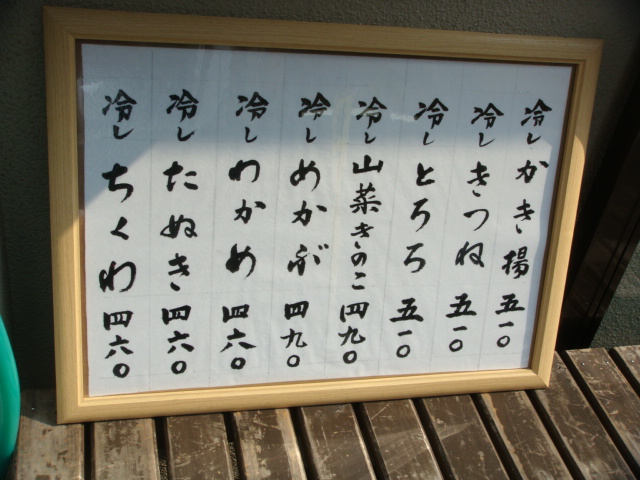 冷しかき揚五一〇
冷しきつね五一〇
冷しとろろ五一〇
冷し山菜きのこ四九〇
冷しめかぶ四九〇
冷しわかめ四六〇
冷したぬき四六〇
冷しちくわ四六〇